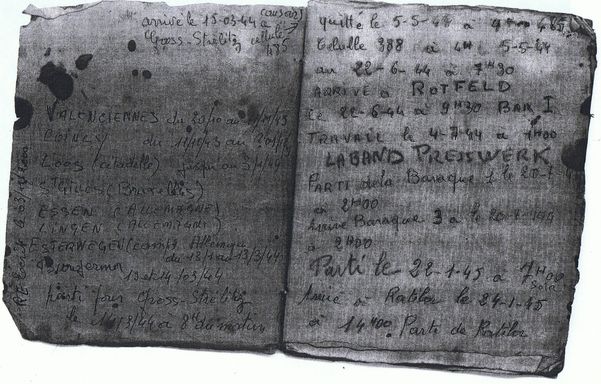 arrivé le 15-03-44 à
Gross-Strélitz cellule
485
VALENCIENNES du 20/10 au
du 11/10/43 au
LOOS (citadelle) jusqu'au 3/1/44
ST GILLES (Bruxelles)
ESSEN (ALLEMAGNE)
LINGEN (ALLEMAGNE)
ESTERWEGEN (camp) Allemagne
du 13/3/44
13 et 14/03/44
parti pour Gross-Strélitz
le 3/44 à 8H du matin
quitté le 5-5-44 à 4H 485
Cellule 388 à 4H 5-5-44
au 22-6-44 à 7H30
ARRIVÉ à ROTFELD
le 22-6-44 à 9H30 BAR I
TRAVAIL le 4-7-44 à H00
LABAND PRESSWERK
PARTI de la Baraque 1 le 20-7
à 2H00
Baraque 3 à le 20-7-44
à 2H00
Parti le 22-1-45 à 7H00
Arrivé à Ratibor le 24-1-45
à 14H00. Parti de Ratibor